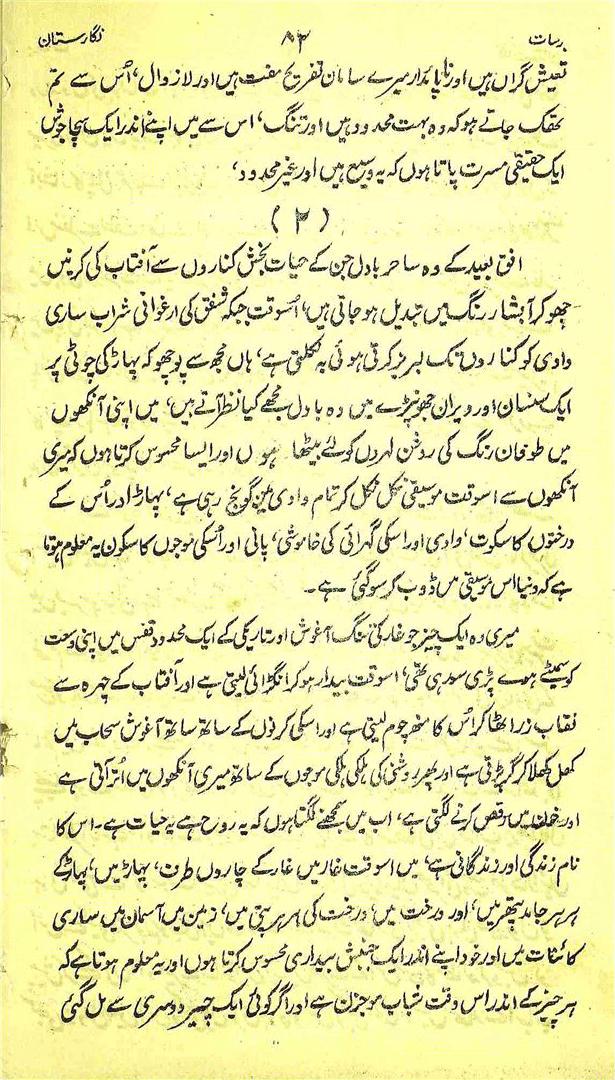 برسات ۸۲ نگارستان
تعیش گراں ہیں اور ناپائدار میرے سامان تفریح مفت ہیں اور لازوال، اُس سے تم
تھک جاتے ہو کہ وہ بہت محدود ہیں اور تنگ، اس سے میں اپنے اندر ایک سچا جوش
ایک حقیقی مسرت پاتا ہوں کہ یہ وسیع ہیں اور غیر محدود،
(۲)
افق بعید کے وہ ساحر بادل جن کے حیات بخش کناروں سے آفتاب کی کرنیں
چھو کر آبشار رنگ میں تبدیل ہو جاتی ہیں، اُسوقت جبکہ شفق کی ارغوانی شراب ساری
وادی کو کناروں تک لبریز کرتی ہوئی بہ نکلتی ہے، ہاں مجھ سے پوچھو کہ پہاڑ کی چوٹی پر
ایک سنسان اور ویران جھونپڑے میں وہ بادل مجھے کیا نظر آتے ہیں، میں اپنی آنکھوں
میں طوفان رنگ کی روشن لہروں کو لئے بیٹھا ہوں اور ایسا محسوس کرتا ہوں کہ میری
آنکھوں سے اسوقت موسیقی نکل نکل کر تمام وادی میں گونج رہی ہے، پہاڑ اور اُس کے
درختوں کا سکوت، وادی اور اسکی گہرائی کی خاموشی، پانی اور اُسکی موجوں کا سکون یہ معلوم ہوتا
ہے کہ دنیا اس موسیقی میں ڈوب کر سو گئی ہے۔
میری وہ ایک چیز جو غار کی تنگ آغوش اور تاریکی کے ایک محدود قفس میں اپنی وسعت
کو سمیٹے ہوے پڑی سو رہی تھی، اسوقت بیدار ہو کر انگڑائی لیتی ہے اور آفتاب کے چہرہ سے
نقاب زرا ہٹا کر اُس کا منھ چوم لیتی ہے اور اسکی کرنوں کے ساتھ ساتھ آغوش سحاب میں
کھل کھلا کر گر پڑتی ہے اور پھر روشنی کی ہلکی ہلکی موجوں کے ساتھ میری آنکھوں میں اُتر آتی ہے
اور خون میں رقص کرنے لگتی ہے، اب میں سمجھنے لگتا ہوں کہ یہ روح ہے یہ حیات ہے۔ اس کا
نام زندگی اور زندگانی ہے، میں اسوقت غار میں غار کے چاروں طرف، پہاڑ میں، پہاڑ کے
ہر ہر جامد پتھر میں، اور درخت میں، درخت کی ہر ہر پتی میں، زمین میں آسمان میں ساری
کائنات میں اور خود اپنے اندر ایک جنبش بیداری محسوس کرتا ہوں اور یہ معلوم ہوتا ہے کہ
ہر چیز کے اندر اس وقت شباب موجزن ہے اور اگر کوئی ایک چیز دوسری سے مل گئی